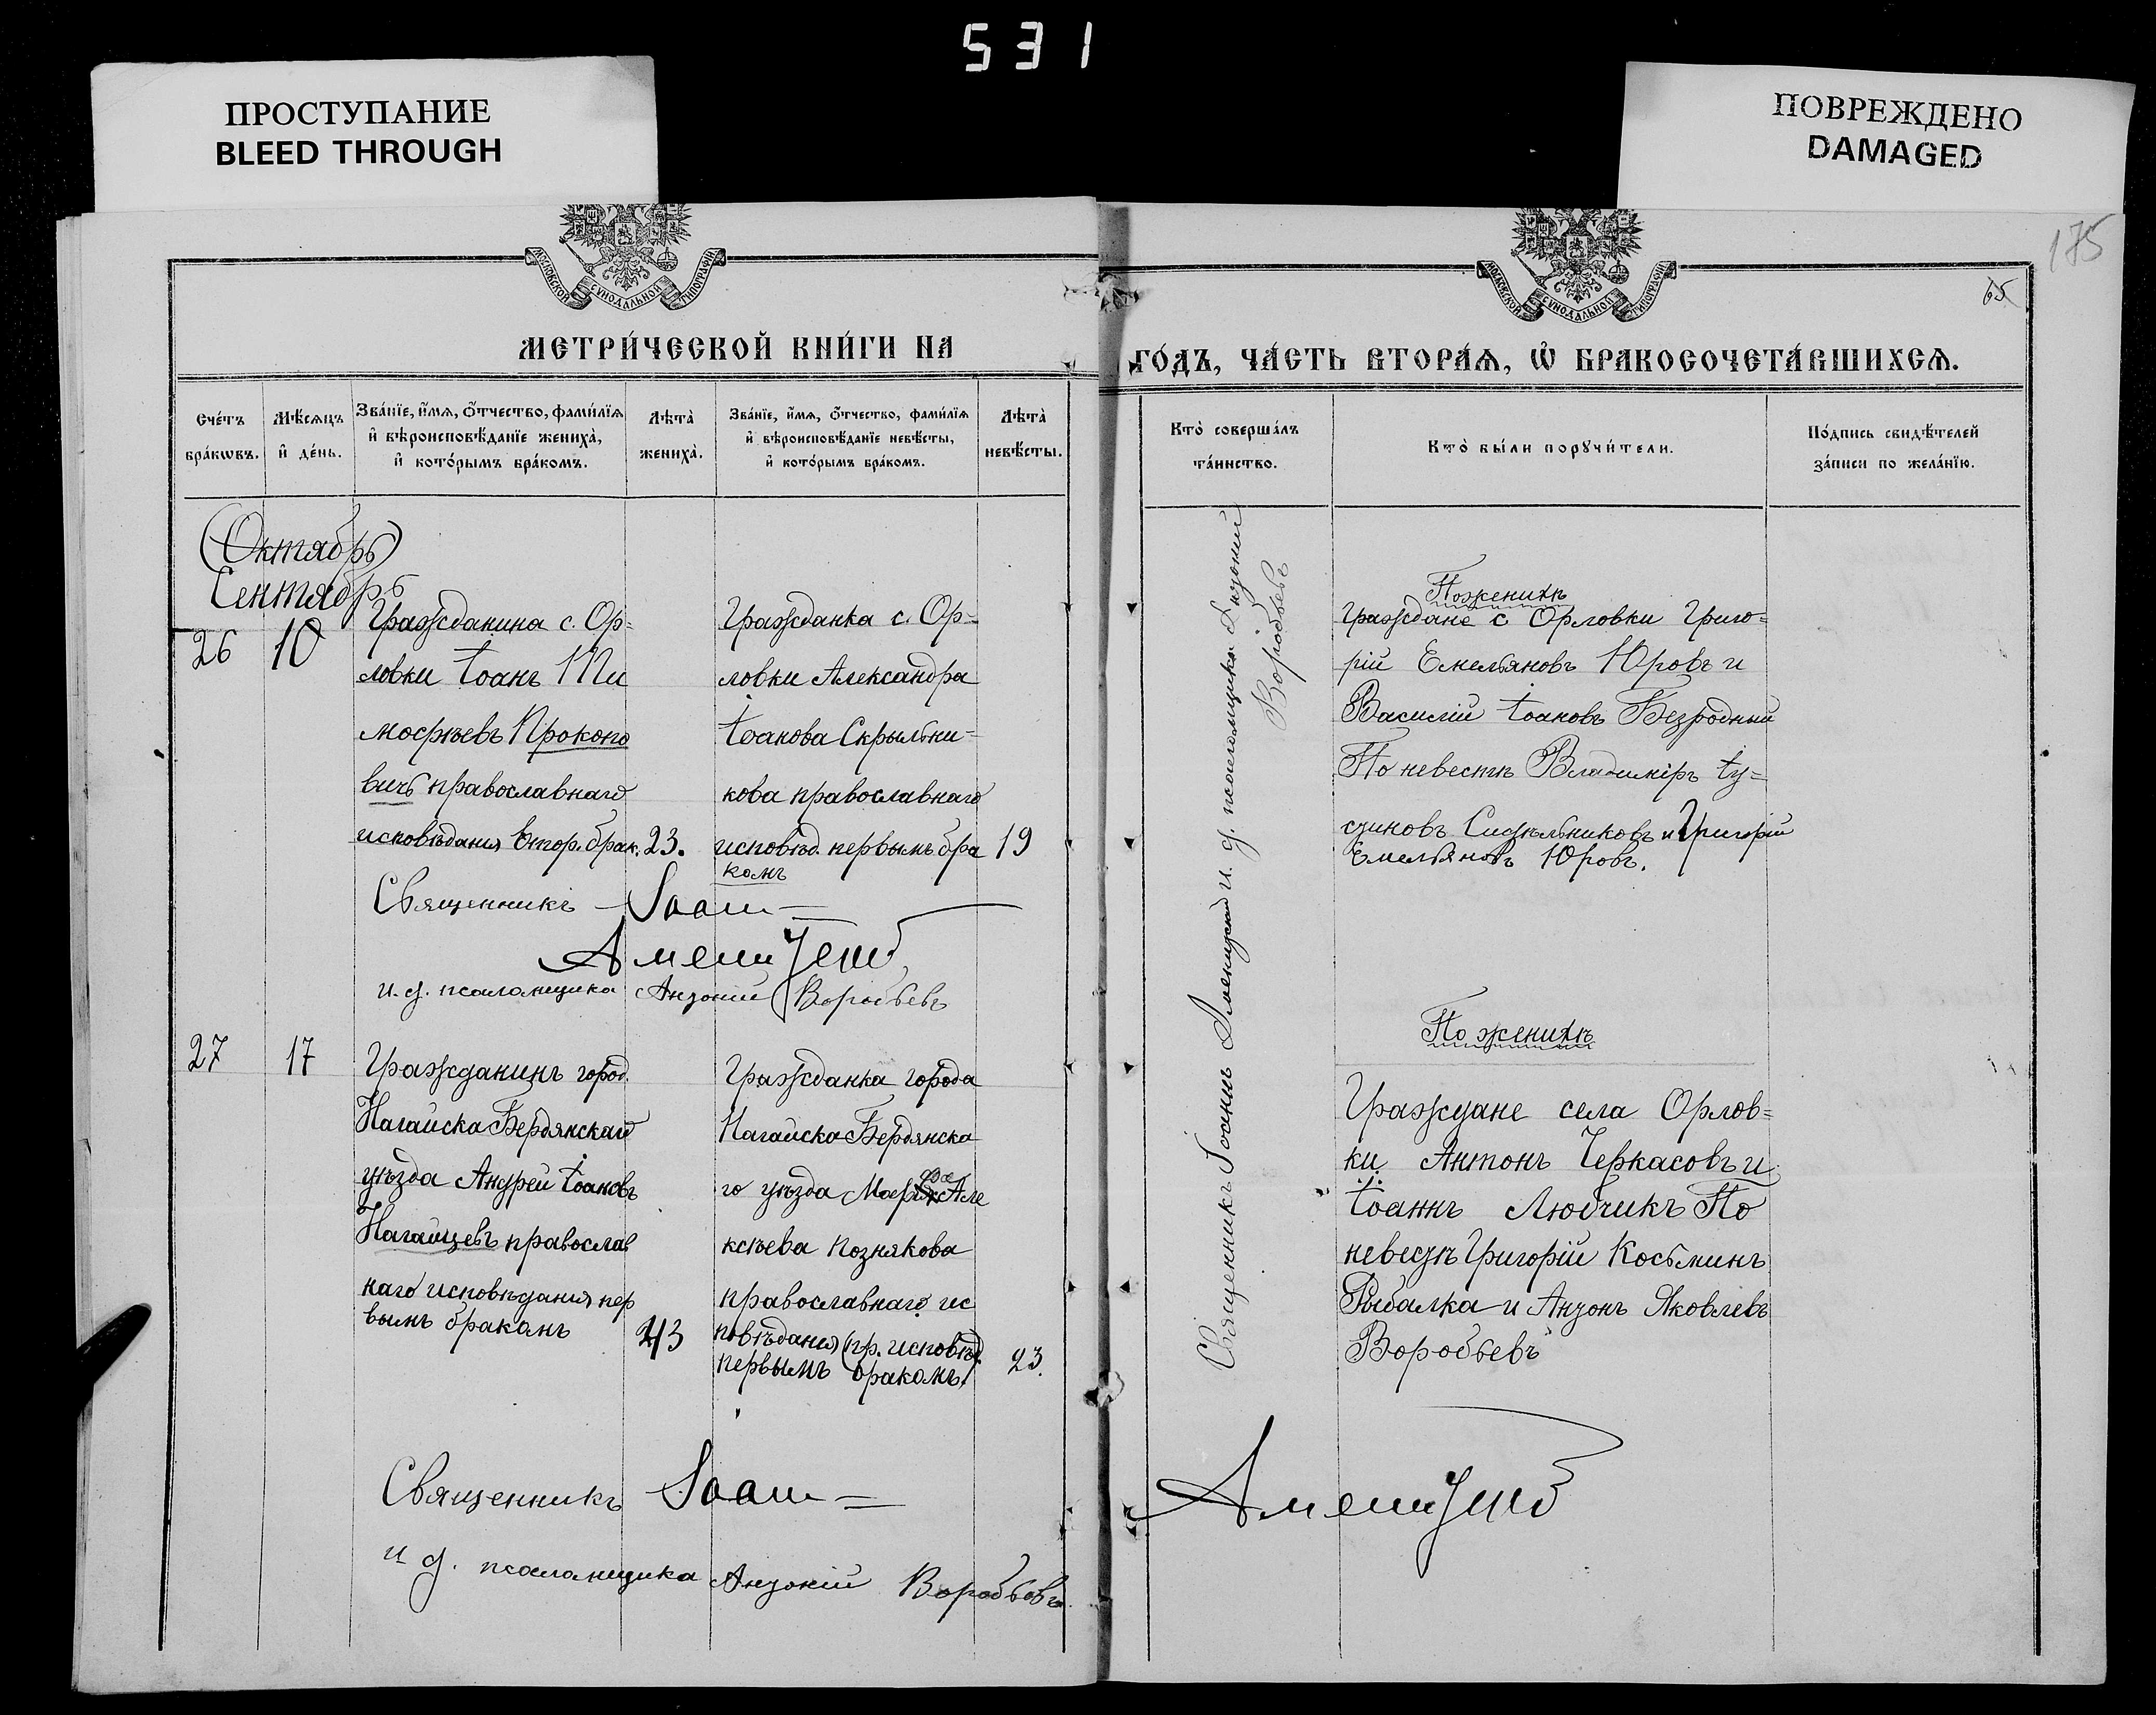 531
ПРОСТУПАНИЕ
BLEED THROUGH
ПОВРЕЖДЕНО
DAMAGED
175
65
МОСКОВСКОЙ СѴНОДАЛЬНОЙ ТИПОГРАФІИ
МОСКОВСКОЙ СѴНОДАЛЬНОЙ ТИПОГРАФІИ
МЕТРИ́ЧЕСКОЙ КНИ́ГИ НА
ГО́ДЪ, ЧА́СТЬ ВТОРА́Ѧ, Ѽ БРАКОСОЧЕТА́ВШИХСѦ.
Сче́тъ
бра́кѡвъ.
Мѣ́сѧцъ
и҆ де́нь.
Зва́нїе, и҆́мѧ, ѻ҆́тчество, фами́лїѧ
и҆ вѣроисповѣ́данїе жениха̀,
и҆ кото́рымъ бра́комъ.
Лѣта̀
жениха̀.
Зва́нїе, и҆́мѧ, ѻ҆́тчество, фами́лїѧ
и҆ вѣроисповѣ́данїе невѣ́сты,
и҆ кото́рымъ бра́комъ.
Лѣта̀
невѣ́сты.
Кто̀ соверша́лъ
та́инство.
Кто̀ бы́ли порꙋчи́тели.
По́дпись свидѣ́телей
за́писи по жела́нїю.
(Октябрь)
Сентябрь
26
10
Гражданина с. Ор=
ловки Іоанъ Ти
мофѣевъ Прокопо
вичъ православнаго
исповѣдания втор. брак.
23.
Гражданка с. Ор=
ловки Александра
Іоанова Скрыльни=
кова православнаго
исповѣд. первымъ бра
комъ
19
Священникъ Іоан
Аменицкій
и. д. псаломщика Антоній Воробьевъ
Поженихѣ
Граждане с Орловки Григо=
рій Емельяновъ Юровъ и
Василій Іоановъ Безродный
По невестѣ Владимиръ Іу=
стиновъ Сидѣльниковъ и Григорій
Емельяновъ Юровъ.
Священникъ Іоаннъ Аменицкій и. д. псаломщика Антоній
Воробьевъ
27
17
Гражданинъ город.
Нагайска Бердянскаго
уѣзда Андрей Іоановъ
Нагайцевъ православ
наго исповѣдания пер
вымъ бракомъ
23
Гражданка города
Нагайска Бердянска
го уѣзда Марфа Але
ксѣева Познякова
православнаго ис
повѣдания (пр. исповѣд.
первымъ бракомъ)
23.
По женихѣ
Граждане села Орлов=
ки Антонъ Черкасовъ и
Іоаннъ Любчикъ По
невестѣ Григорій Косьминъ
Рыбалка и Антонъ Яковлевъ
Воробьевъ
Священникъ Іоан
Аменицкій
и д. псаломщика Антоній Воробьовъ